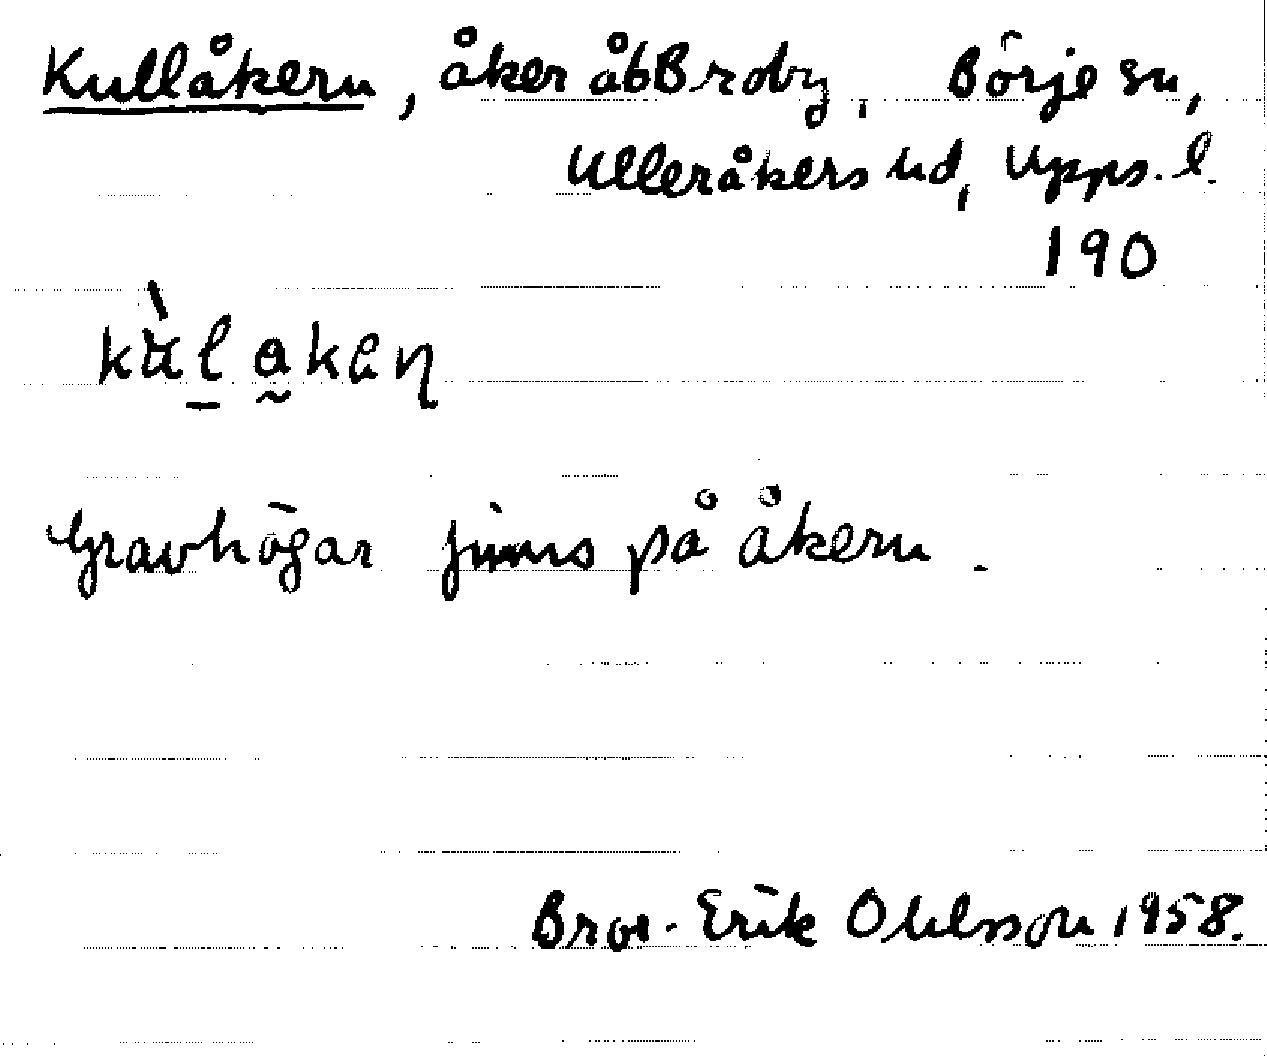 Kullåkern, åker åb Broby, Börje sn,
Ulleråkers hd, Upps. l.
190
kùl̠a̰ken
Gravhögar finns på åkern.
Bror-Erik Ohlsson 1958.